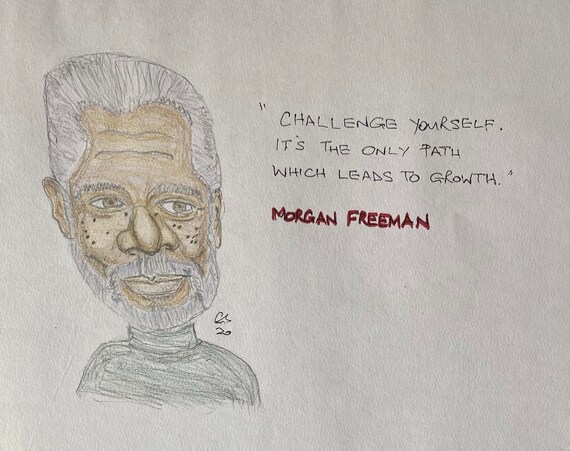 " CHALLENGE YOURSELF.
IT'S THE ONLY PATH
WHICH LEADS TO GROWTH."
MORGAN FREEMAN
20